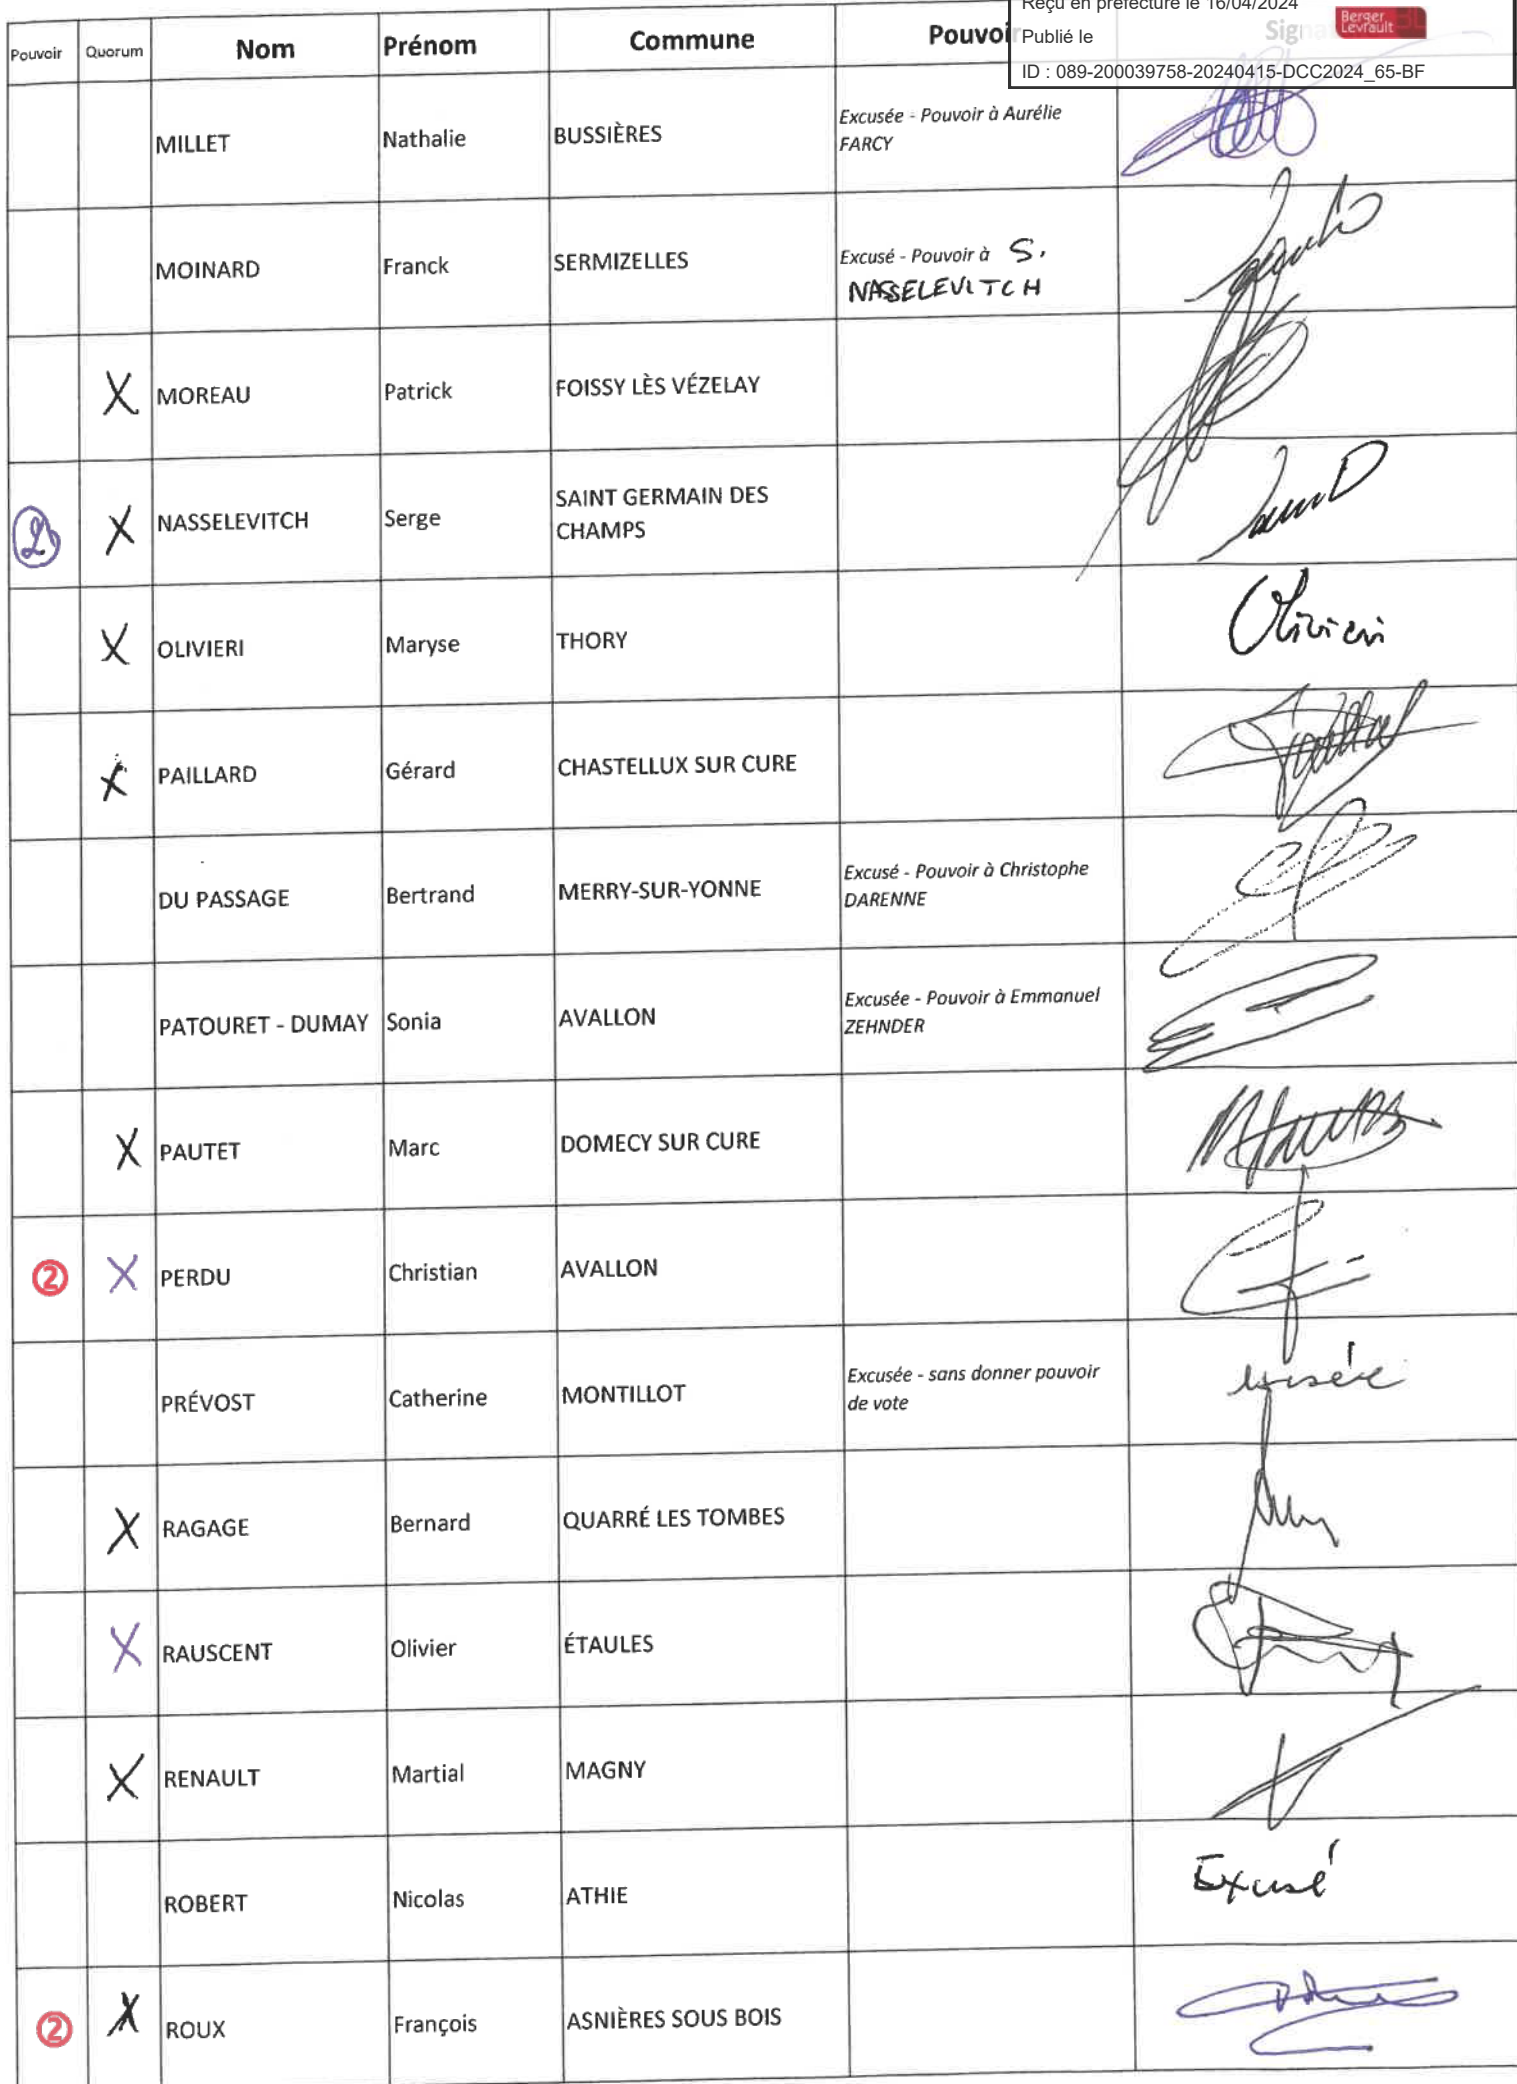 Reçu en préfecture le 16/04/2024
Publié le
Berger
Levrault
ID : 089-200039758-20240415-DCC2024_65-BF
Pouvoir Quorum Nom Prénom Commune Pouvoir
MILLET Nathalie BUSSIÈRES Excusée - Pouvoir à Aurélie
FARCY
MOINARD Franck SERMIZELLES Excusé - Pouvoir à S.
NASSELEVITCH
X MOREAU Patrick FOISSY LÈS VÉZELAY
2 X NASSELEVITCH Serge SAINT GERMAIN DES
CHAMPS
X OLIVIERI Maryse THORY Olivieri
X PAILLARD Gérard CHASTELLUX SUR CURE
DU PASSAGE Bertrand MERRY-SUR-YONNE Excusé - Pouvoir à Christophe
DARENNE
PATOURET - DUMAY Sonia AVALLON Excusée - Pouvoir à Emmanuel
ZEHNDER
X PAUTET Marc DOMECY SUR CURE
2 X PERDU Christian AVALLON
PRÉVOST Catherine MONTILLOT Excusée - sans donner pouvoir
de vote
X RAGAGE Bernard QUARRÉ LES TOMBES
X RAUSCENT Olivier ÉTAULES
X RENAULT Martial MAGNY
ROBERT Nicolas ATHIE Excusé
2 X ROUX François ASNIÈRES SOUS BOIS